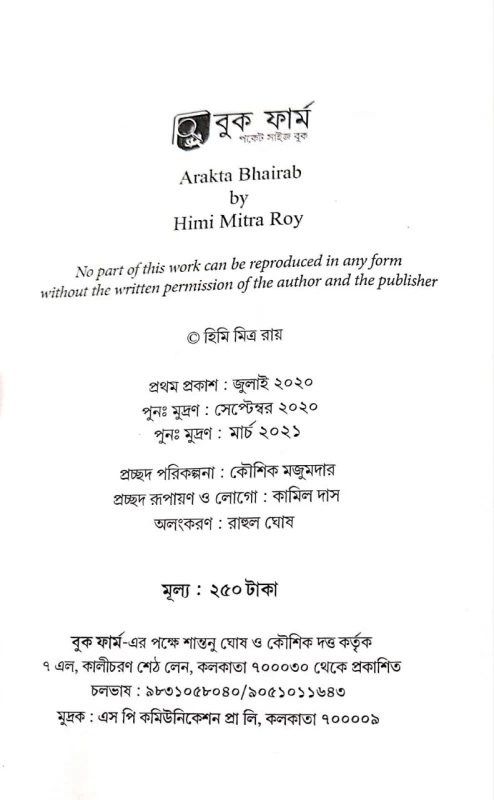 বুক ফার্ম
পকেট সাইজ বুক
Arakta Bhairab
by
Himi Mitra Roy
No part of this work can be reproduced in any form
without the written permission of the author and the publisher
© হিমি মিত্র রায়
প্রথম প্রকাশ : জুলাই ২০২০
পুনঃ মুদ্রণ : সেপ্টেম্বর ২০২০
পুনঃ মুদ্রণ : মার্চ ২০২১
প্রচ্ছদ পরিকল্পনা : কৌশিক মজুমদার
প্রচ্ছদ রূপায়ণ ও লোগো : কামিল দাস
অলংকরণ : রাহুল ঘোষ
মূল্য : ২৫০ টাকা
বুক ফার্ম-এর পক্ষে শান্তনু ঘোষ ও কৌশিক দত্ত কর্তৃক
৭ এল, কালীচরণ শেঠ লেন, কলকাতা ৭০০০৩০ থেকে প্রকাশিত
চলভাষ : ৯৮৩১০৫৮০৪০/৯০৫১০১১৬৪৩
মুদ্রক : এস পি কমিউনিকেশন প্রা লি, কলকাতা ৭০০০০৯